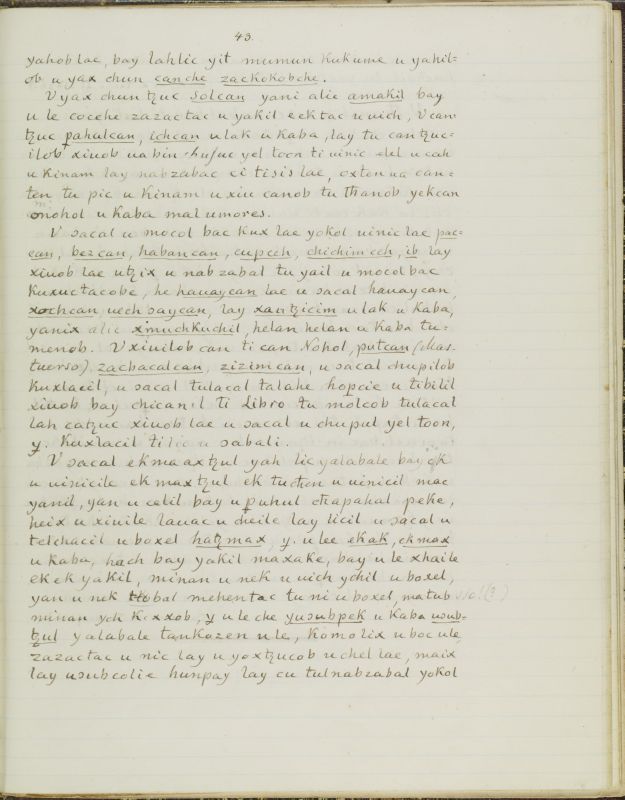 43.
yahob lae, bay lahlic yit mumun kukume u yakil=
ob u yax chun canche zackokobche.
V yax chun tzuc solcan yani alic amakil bay
u le cocehe zazactac u yakil eektac u uich, V can
tzuc pahalcan, ichcan u lak u kaba, lay tu can tzuc=
ilob xiuob ua bin yel toon ti uinic elel u cah
u kinam lay nabzabac ci tisis lae, oxten ua can=
ten tu pic u kinam u xiu canob tu thanob yekcan
onohol u kaba mal umores.
V sacal u mocol bac kux lae yokol uinic lae pac=
can, bezcan, habancan, cupceh, chichimeeh, ib lay
xiuob lae utzix u nabzabal tu yail u mocol bac
kuxuctacobe, he hauaycan lae u sacal hauaycan,
xochcan uech saycan, lay xantzicim u lak u kaba,
yanix alic xmuchkuchil, helan helan u kaba tu=
menob. V xiuilob can ti can Nohol, putcan (Mas=
tuerso). zacbacalcan, zizim can, u sacal chupilob
kuxlacil, u sacal tulacal talahe hopcie u tibilil
xiuob bay chicanil ti Libro tu molcob tulacal
lah catzuc xiuob lae u sacal u chupul yel toon,
y. kuxlacil ti lic u sabali.
V sacal ekmaaxtzul yah lic yalabale bay ek
u uinicile ek maxtzul ek tu chen u uinicil mac
yanil, yan u celil bay u puhul chapahal peke,
heix u xiuile lauac u cheile lay licil u sacal u
telchacil u boxel hatzmax, y. u lee ekak, ekmax
u kaba, hach bay yakil maxake, bay u le xhaile
ek ek yakil, minan u nek u uich ychil u boxel,
yan u nek bal mehentac tu ni u boxel, matub
minan ych kaxxob, y u le che yusubpek u kaba usub=
tzul yalabale tankazen u le, komolix u boc u le,
zazactac u nic lay u yoxtzucob u chel lae, maix
lay usubcolie hunpay lay cu tulnabzabal yokol